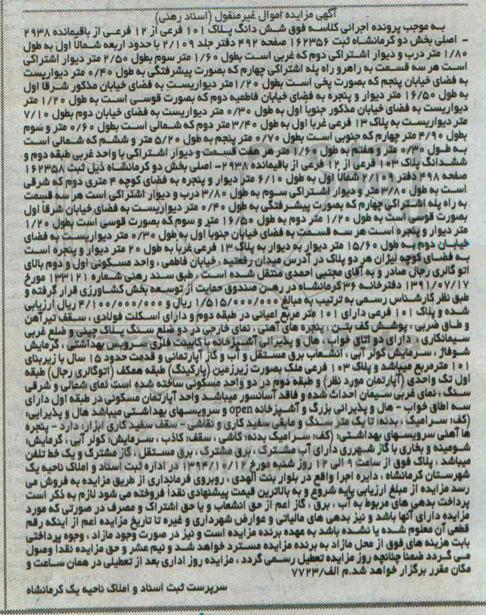 آگهی مزایده اموال غیرمنقول (اسناد رهنی)
به موجب پرونده اجرائی کلاسه فوق شش دانگ پلاک ۱۰۱ فرعی از ۱۲ فرعی از باقیمانده ۲۹۳۸
- اصلی بخش دو کرمانشاه ثبت ۱۶۲۳۵۶ صفحه ۴۹۲ دفتر جلد ۲/۱۰۹ با حدود اربعه شمالا اول به طول
۱/۸۰ متر درب و دیوار اشتراکی دوم که غربی است بطول ۱/۶۰ متر سوم بطول ۲/۵۰ متر دیوار اشتراکی
است هر سه قسمت به راهرو راه پله اشتراکی چهارم که بصورت پیشرفتگی به طول ۰/۴۰ متر دیواریست
به فضای خیابان پنجم که بصورت پخی است بطول ۱/۲۰ متر دیواریست به فضای خیابان مذکور شرقا اول
به طول ۱۶/۵۰ متر دیوار و پنجره به فضای خیابان فاطمیه دوم که بصورت قوسی است به طول ۱/۲۰ متر
دیواریست به فضای خیابان مذکور جنوبا اول به طول ۰/۳۰ متر دیواریست به فضای خیابان دوم بطول ۷/۱۰
متر دیواریست به پلاک ۱۳ فرعی غربا اول به طول ۳/۴۰ متر دوم که شمالی است بطول ۰/۶۰ متر و سوم
بطول ۴/۹۰ متر چهارم که جنوبی است بطول ۰/۷۰ متر پنجم به طول ۵/۲۰ متر و ششم که شمالی است
به طول ۰/۳۰ متر و هفتم به طول ۱/۶۰ متر هر هفت قسمت و دیوار اشتراکی با واحد غربی طبقه دوم و
ششدانگ پلاک ۱۰۳ فرعی از ۱۲ فرعی از باقیمانده ۲۹۳۸- اصلی بخش دو کرمانشاه ذیل ثبت ۱۶۲۳۵۸
صفحه ۴۹۸ دفتر ۲/۱۰۹ شمالا اول به طول ۶/۱۰ متر دیوار و پنجره به فضای کوچه ۴ متری دوم که شرقی
است به طول ۳/۸۰ متر و دیوار اشتراکی سوم به طول ۳/۸۰ متر درب و دیوار اشتراکی است هر سه قسمت
به راه پله اشتراکی چهارم که بصورت پیشرفتگی به طول ۰/۴۰ متر دیواریست به فضای خیابان شرقا اول
بصورت قوسی است به طول ۱/۲۰ متر دوم به طول ۱۶/۵۰ متر و سوم که بصورت قوسی است بطول ۱/۲۰
متر دیوار و پنجره است هر سه قسمت به فضای خیابان جنوبا اول به طول ۰/۳۰ متر دیواریست به فضای
خیابان دوم به طول ۱۵/۶۰ متر دیوار به دیوار به پلاک ۱۳ فرعی غربا به طول ۲۰ متر دیوار و پنجره است
به فضای کوچه لیزان هر دو پلاک در آدرس میدان رفعتیه، خیابان فاطمی، واحد مسکونی اول و دوم بالای
اتو گالری رجال صادر و به آقای مجتبی احمدی منتقل شده است، طبق سند رهنی شماره ۱۳۳۱۲۱ مورخ
۱۳۹۱/۰۷/۱۷ دفترخانه ۳۶ کرمانشاه در رهن صندوق حمایت از توسعه بخش کشاورزی قرار گرفته و
طبق نظر کارشناس رسمی به ترتیب به مبالغ ۱/۵۱۵/۰۰۰/۰۰۰ ریال و ۴/۱۰۰/۰۰۰/۰۰۰ ریال ارزیابی
شده و پلاک ۱۰۱ فرعی دارای ۱۰۱ متر مربع اعیانی در طبقه دوم و دارای اسکلت فولادی، سقف تیرآهن
و طاق ضربی، پوشش کف بتنی، پنجره های آهنی، نمای خارجی در دو ضلع سنگ پلاک چینی و ضلع غربی
سیمانکاری، دارای دو اتاق خواب، هال و پذیرائی آشپزخانه با کابینت فلزی، سرویس بهداشتی، گرمایش
شوفاژ، سرمایش کولر آبی، انشعاب برق مستقل و آب و گاز آپارتمانی و قدمت حدود ۱۵ سال با زیربنای
۱۰۱ مترمربع میباشد و پلاک ۱۰۳ فرعی ملک بصورت زیرزمین (پارکینگ) طبقه همکف (اتوگالری رجال) طبقه
اول تک واحدی (آپارتمان مورد نظر) و طبقه دوم در دو واحد مسکونی ساخته شده است نمای شمالی و شرقی
سنگ، نمای غربی سیمان احداث شده و فاقد آسانسور میباشد و واحد آپارتمان مسکونی در طبقه اول دارای
سه اطاق خواب - هال و پذیرائی بزرگ و آشپزخانه open و سرویسهای بهداشتی میباشد هال و پذیرایی؛
(کف: سرامیک، بدنه: تا یک متر سنگ و مابقی سفید کاری و نقاشی - سقف سفید کاری ابزار، دارد - پنجره
ها آهنی سرویسهای بهداشتی: (کف: سرامیک بدنه: کاشی، سقف: کاذب، سرمایش: کولر آبی، گرمایش:
شومینه و بخاری با گاز شهری دارای آب مشترک، برق مشترک، برق مستقل، گاز مشترک و یک خط تلفن
میباشد، پلاک فوق از ساعت ۹ الی ۱۲ روز شنبه مورخ ۱۳۹۴/۱۰/۱۲ در اداره ثبت اسناد و املاک ناحیه یک
شهرستان کرمانشاه، دایره اجرا واقع در بلوار بنت الهدی، روبروی فرمانداری از طریق مزایده به فروش می
رسد مزایده از مبلغ ارزیابی پایه شروع و به بالاترین قیمت پیشنهادی نقدا فروخته می شود لازم به ذکر است
پرداخت بدهی های مربوط به آب، برق، گاز اعم از حق انشعاب و یا حق اشتراک و مصرف در صورتی که مورد
مزایده دارای آنها باشد و نیز بدهی های مالیاتی و عوارض شهرداری و غیره تا تاریخ مزایده اعم از اینکه رقم
قطعی آن معلوم شده یا نشده باشد به عهده برنده مزایده است و نیز در صورت وجود مازاد، وجوه پرداختی
بابت هزینه های فوق از محل مازاد به برنده مزایده مسترد خواهد شد و نیم عشر و حق مزایده نقدا وصول
می گردد ضمنا چنانچه روز مزایده تعطیل رسمی گردد، مزایده روز اداری بعد از تعطیلی در همان ساعت و
مکان مقرر برگزار خواهد شد.م الف/۷۷۲۳
سرپرست ثبت اسناد و املاک ناحیه یک کرمانشاه